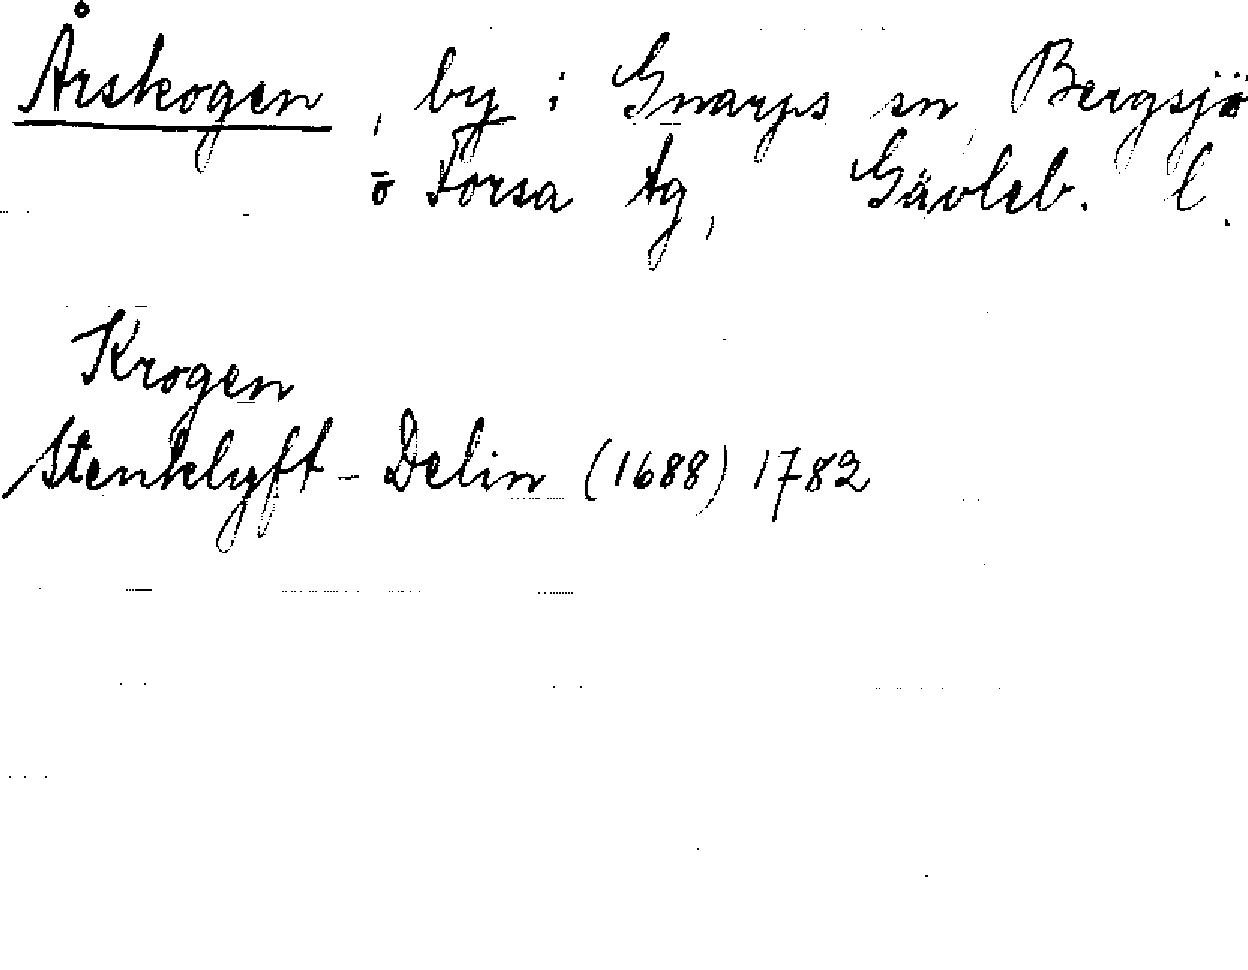 Årskogen, by i Gnarps sn, Bergsjö
o Forsa tg, Gävleb. l.
Krogen
Stenklyft - Delin (1688) 1782